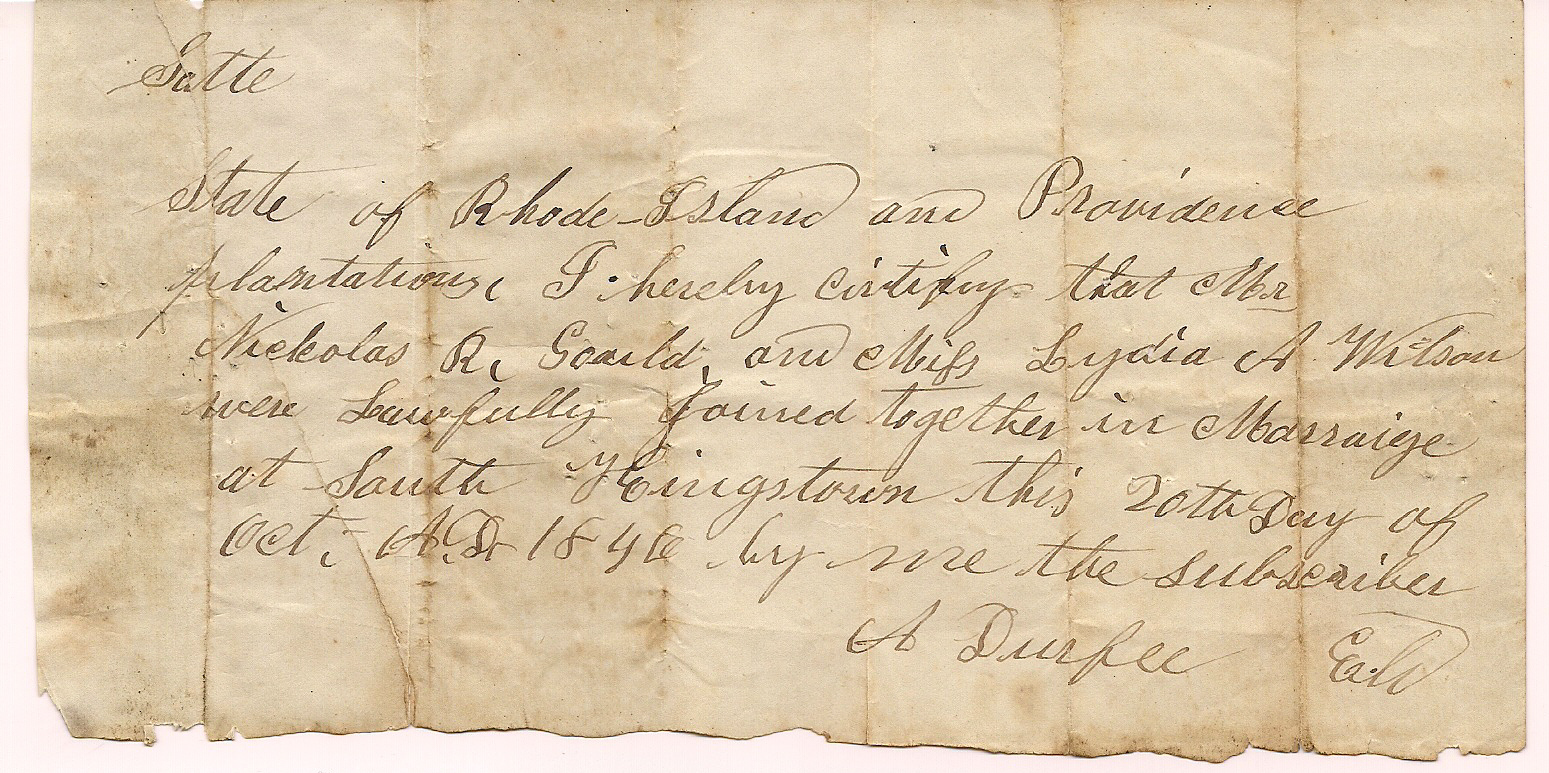 Satte
State of Rhode-Island and Providence
plantations, I hereby cirtifuy that Mr
Nickolas R, Gould, and Miss Lydia A Wilson
were Lawfully Joined together in Marraige
at South Kingstown this 20th Day of
Oct, A.D. 1846 by me the subscriber
A Durfee Eld